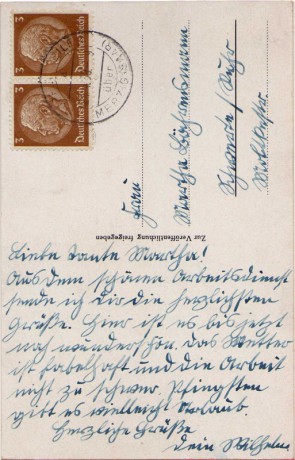 3
Deutsches Reich
3
Deutsches Reich
über
Frau
Martha
Schwerte / Ruhr
Zur Veröffentlichung freigegeben
Liebe Tante Martha!
Aus dem schönen Arbeitsdienst
sende ich Dir die herzlichsten
Grüße. Hier ist es bis jetzt
noch wunderschön. Das Wetter
ist fabelhaft und die Arbeit
nicht zu schwer. Pfingsten
gibt es vielleicht Urlaub.
Herzliche Grüße
Dein Wilhelm